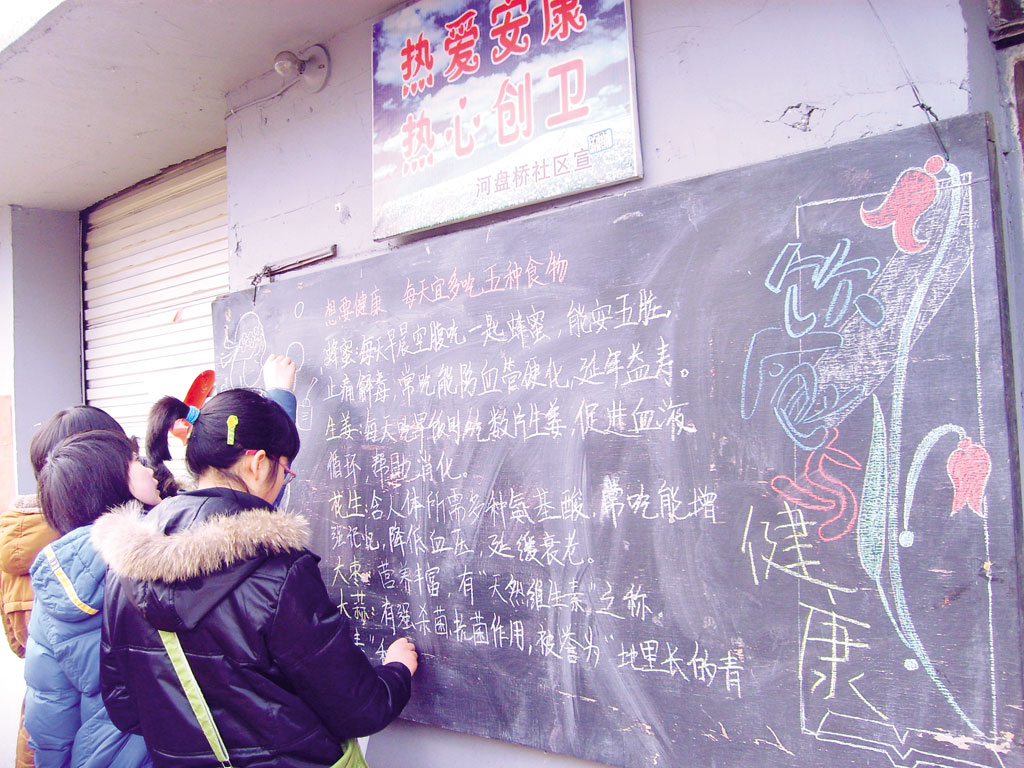 热爱安康
热心创卫
河盘桥社区宣
想要健康 每天宜多吃五种食物
蜂蜜:每天早晨空腹吃一匙蜂蜜,能安五脏,
止痛解毒,常吃能防血管硬化,延年益寿。
生姜:每天吃早饭时吃数片生姜,促进血液
循环,帮助消化。
花生:含人体所需多种氨基酸,常吃能增
强记忆,降低血压,延缓衰老。
大枣:营养丰富,有"天然維生素"之称。
大蒜:有强杀菌抗菌作用,被誉为"地里长的青
饮
健
康